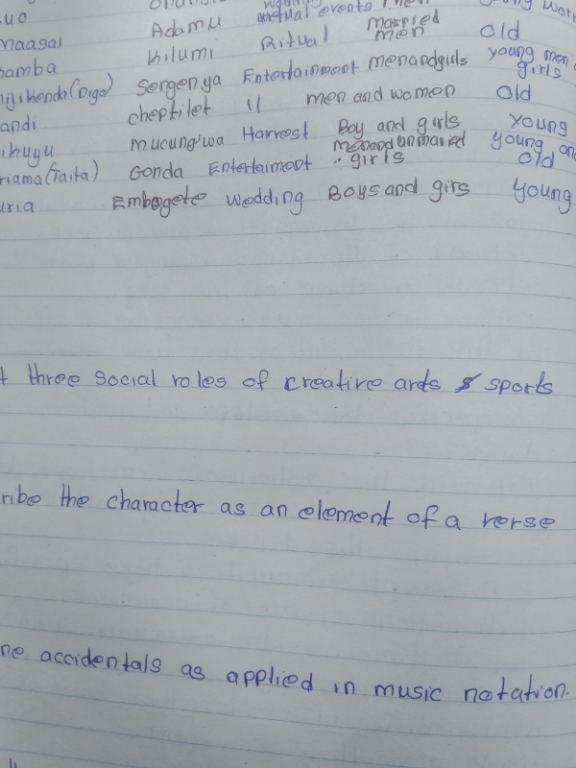 uo Adamu annual events men
maasai Kilumi Ritual married men Old
kamba Sengenya Entertainment men and girls young men girls
ijikenda (Digo) cheptilet 11 men and women Old
andi mucung'wa Harvest Boy and girls young
ikuyu Gonda Entertaiment girls young and old
riama (Taita)
uria Embegete wedding Boys and girs young
t three social roles of creative arts & sports
ribe the character as an element of a verse
ne accidentals as applied in music notation.